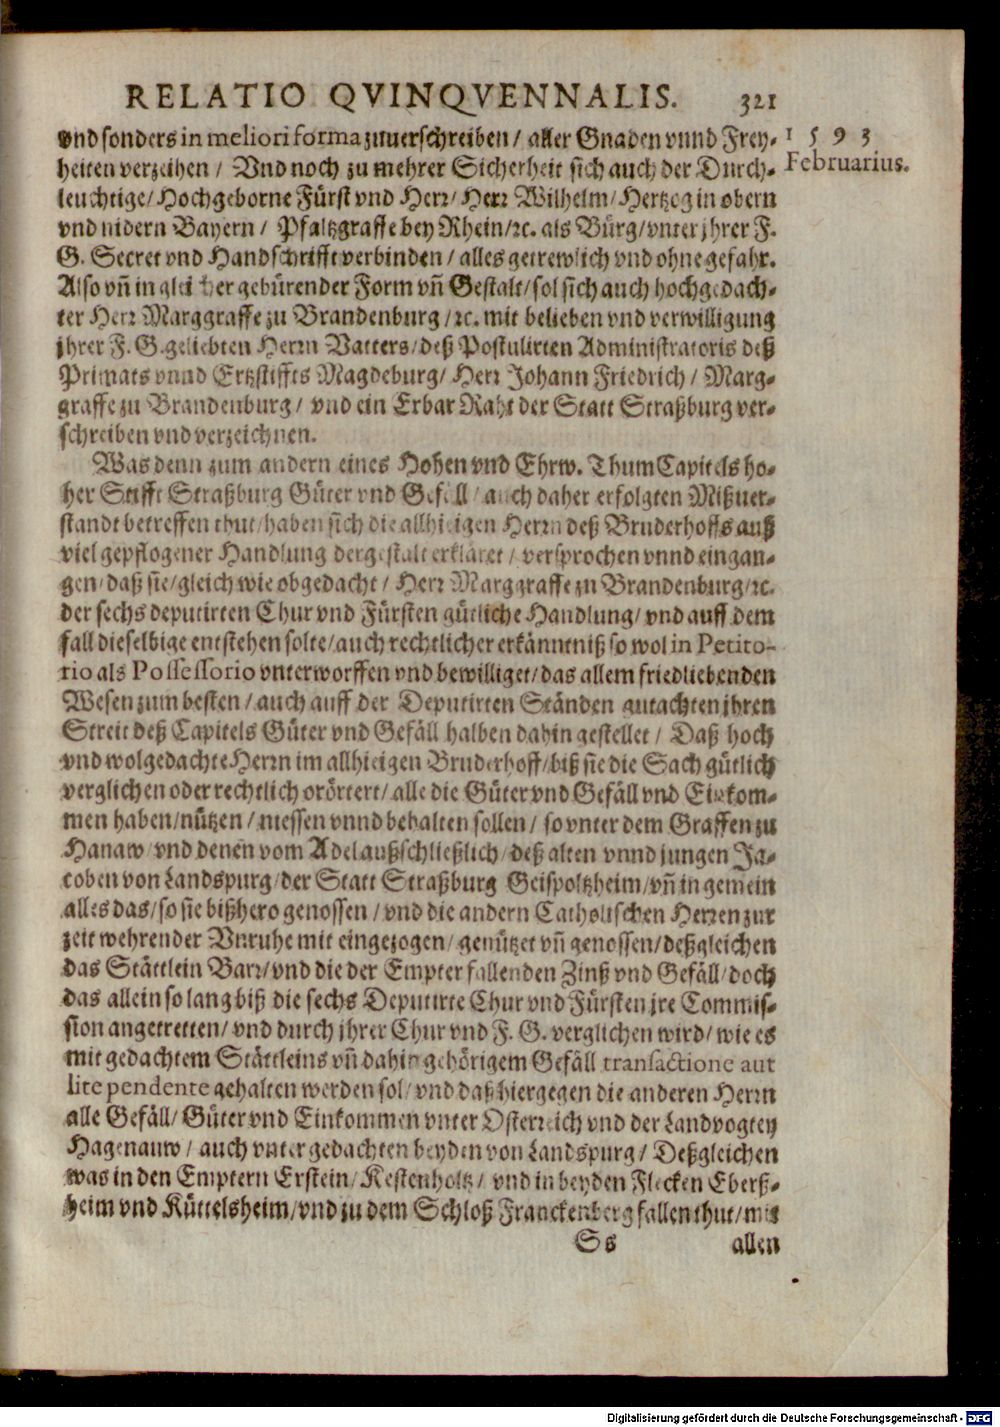 RELATIO QVINQVENNALIS. 321
vnd sonders in meliori forma zuuerschreiben / aller Gnaden vnnd Frey-
1593
Februarius.
heiten verzeihen / Vnd noch zu mehrer Sicherheit sich auch der Durch-
leuchtige / Hochgeborne Fürst vnd Herr / Herr Wilhelm / Hertzog in obern
vnd nidern Bayern / Pfaltzgraffe bey Rhein / ꝛc. als Bürg / vnter jhrer F.
G. Secret vnd Handschrifft verbinden / alles getrewlich vnd ohne gefahr.
Also vñ in gleicher gebürender Form vñ Gestalt / sol sich auch hochgedach-
ter Herr Marggraffe zu Brandenburg / ꝛc. mit belieben vnd verwilligung
jhrer F. G. geliebten Herrn Vatters / deß Postulirten Administratoris deß
Primats vnnd Ertzstiffts Magdeburg / Herr Johann Friedrich / Marg-
graffe zu Brandenburg / vnd ein Erbar Raht der Statt Straßburg ver-
schreiben vnd verzeichnen.
Was denn zum andern eines Hohen vnd Ehrw. ThumCapitels ho-
her Stifft Straßburg Güter vnd Gefäll / auch daher erfolgten Mißuer-
standt betreffen thut / haben sich die allhieigen Herrn deß Bruderhoffs auß
viel gepflogener Handlung dergestalt erkläret / versprochen vnnd eingan-
gen / daß sie / gleich wie obgedacht / Herr Marggraffe zu Brandenburg / ꝛc.
der sechs deputirten Chur vnd Fürsten gütliche Handlung / vnd auff dem
fall dieselbige entstehen solte / auch rechtlicher erkänntniß so wol in Petito-
rio als Possessorio vnterworffen vnd bewilliget / das allem friedliebenden
Wesen zum besten / auch auff der Deputirten Ständen gutachten jhren
Streit deß Capitels Güter vnd Gefäll halben dahin gestellet / Daß hoch
vnd wolgedachte Herrn im allhieigen Bruderhoff / biß sie die Sach gütlich
verglichen oder rechtlich orörtert / alle die Güter vnd Gefäll vnd Einkom-
men haben / nützen / niessen vnnd behalten sollen / so vnter dem Graffen zu
Hanaw / vnd denen vom Adel außschließlich / deß alten vnnd jungen Ja-
coben von Landspurg / der Statt Straßburg Geispoltzheim / vñ in gemein
alles das / so sie bißhero genossen / vnd die andern Catholischen Herren zur
zeit wehrender Vnruhe mit eingezogen / genützet vñ genossen / deßgleichen
das Stättlein Barr / vnd die der Empter fallenden Zinß vnd Gefäll / doch
das allein so lang biß die sechs Deputirte Chur vnd Fürsten jre Commis-
sion angetretten / vnd durch jhrer Chur vnd F. G. verglichen wird / wie es
mit gedachtem Stättleins vñ dahin gehörigem Gefäll transactione aut
lite pendente gehalten werden sol / vnd daß hiergegen die anderen Herrn
alle Gefäll / Güter vnd Einkommen vnter Osterreich vnd der Landvogtey
Hagenauw / auch vnter gedachten beyden von Landspurg / Deßgleichen
was in den Emptern Erstein / Kestenholtz / vnd in beyden Flecken Eberß-
heim vnd Küttelsheim / vnd zu dem Schloß Franckenberg fallen thut / mit
Ss allen
Digitalisierung gefördert durch die Deutsche Forschungsgemeinschaft - DFG